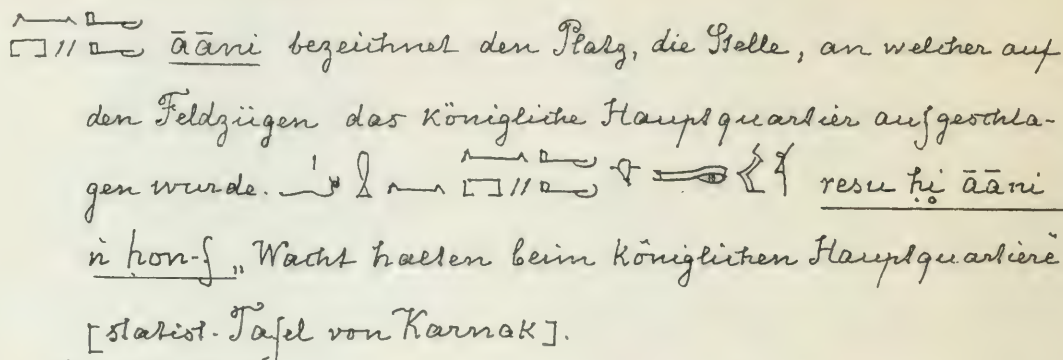 āāni bezeichnet den Platz, die Stelle, an welcher auf
den Feldzügen das königliche Hauptquartier aufgeschla-
gen wurde. resu ḥi āāni
ṅ ḥon-f „Wacht halten beim königlichen Hauptquartiere"
[statist. Tafel von Karnak].